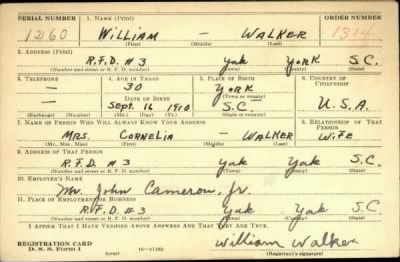 SERIAL NUMBER 1. NAME (Print) ORDER NUMBER
1260 WILLIAM — WALKER 1314
(First) (Middle) (Last)
2. ADDRESS (Print)
R.F.D. #3 York YORK S.C.
(Number and street or R. F. D. number) (Town) (County) (State)
3. TELEPHONE 4. AGE IN YEARS 5. PLACE OF BIRTH 6. COUNTRY OF CITIZENSHIP
— 30 YORK
DATE OF BIRTH (Town or county)
— Sept. 16 1910 S.C. U.S.A.
(Exchange) (Number) (Mo.) (Day) (Yr.) (State or country)
7. NAME OF PERSON WHO WILL ALWAYS KNOW YOUR ADDRESS 8. RELATIONSHIP OF THAT PERSON
MRS. CORNELIA — WALKER WIFE
(Mr., Mrs., Miss) (First) (Middle) (Last)
9. ADDRESS OF THAT PERSON
R.F.D. #3 York York S.C.
(Number and street or R. F. D. number) (Town) (County) (State)
10. EMPLOYER'S NAME
Mr. John Cameron, Jr.
11. PLACE OF EMPLOYMENT OR BUSINESS
R.F.D. #3 York York S.C
(Number and street or R. F. D. number) (Town) (County) (State)
I AFFIRM THAT I HAVE VERIFIED ABOVE ANSWERS AND THAT THEY ARE TRUE.
REGISTRATION CARD William Walker
D. S. S. FORM 1 (over) (Registrant's signature)